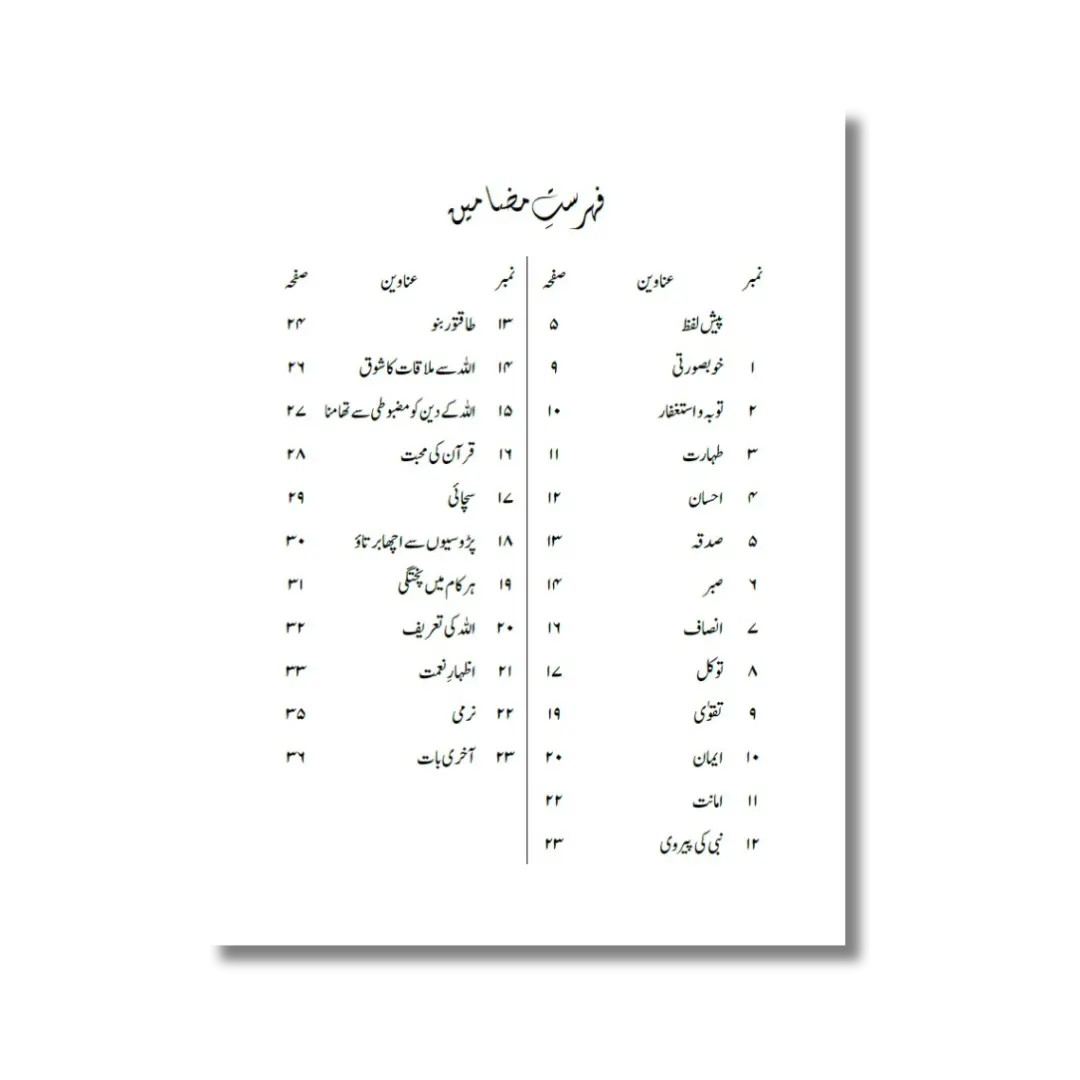 فہرستِ مضامین
نمبر عناوین صفحہ
پیش لفظ ۵
۱ خوبصورتی ۹
۲ توبہ و استغفار ۱۰
۳ طہارت ۱۱
۴ احسان ۱۲
۵ صدقہ ۱۳
۶ صبر ۱۴
۷ انصاف ۱۶
۸ توکل ۱۷
۹ تقوٰی ۱۹
۱۰ ایمان ۲۰
۱۱ امانت ۲۲
۱۲ نبی کی پیروی ۲۳
نمبر عناوین صفحہ
۱۳ طاقتور بنو ۲۴
۱۴ اللہ سے ملاقات کا شوق ۲۶
۱۵ اللہ کے دین کو مضبوطی سے تھامنا ۲۷
۱۶ قرآن کی محبت ۲۸
۱۷ سچائی ۲۹
۱۸ پڑوسیوں سے اچھا برتاؤ ۳۰
۱۹ ہر کام میں پختگی ۳۱
۲۰ اللہ کی تعریف ۳۲
۲۱ اظہارِ نعمت ۳۳
۲۲ نرمی ۳۵
۲۳ آخری بات ۳۶